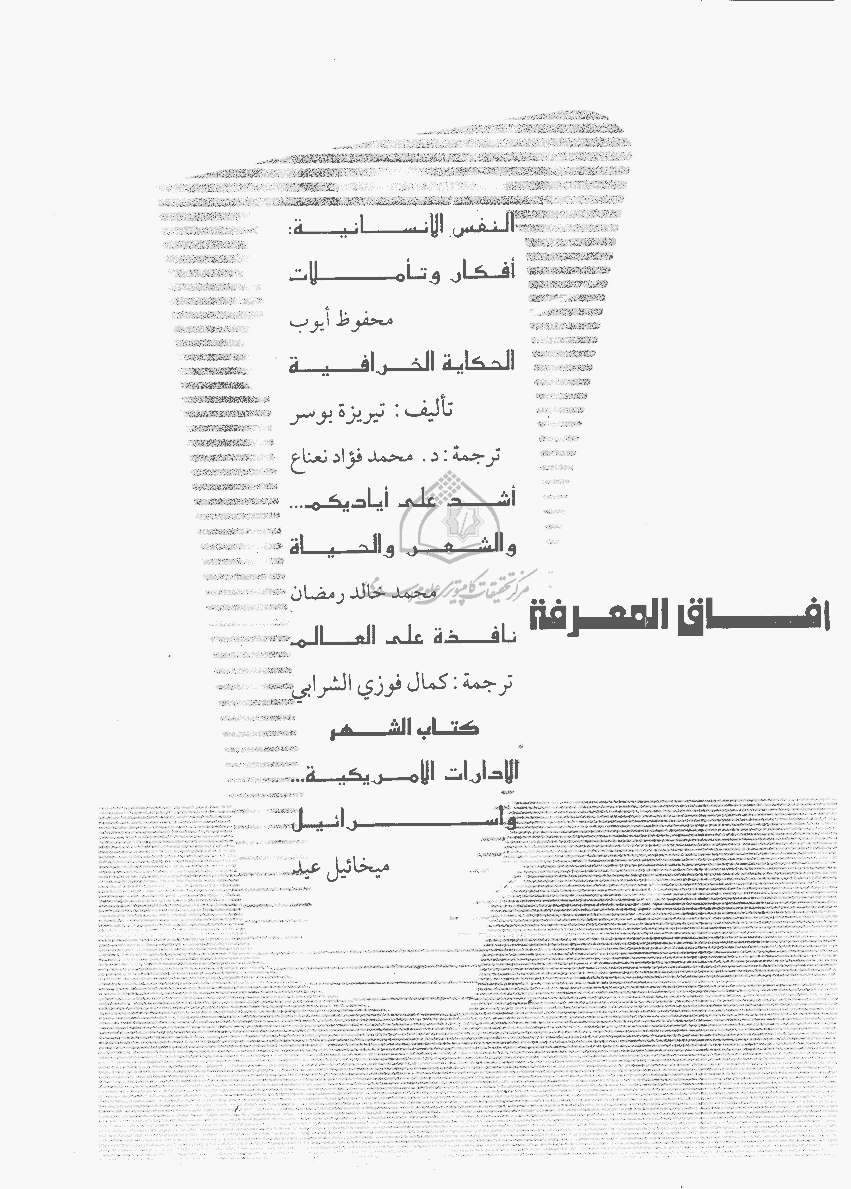 النفس الانسانية:
أفكار وتأملات
محفوظ أيوب
الحكاية الخرافية
تأليف: تيريزة بوسر
ترجمة: د. محمد فؤاد نعناع
أشد على أياديكم...
والشعر والحياة
مركز تحقيقات كامپيوتری علوم اسلامی
محمد خالد رمضان
آفاق المعرفة
نافذة على العالم
ترجمة: كمال فوزي الشرابي
كتاب الشهر
الادارات الأمريكية...
وأسرائيل
ميخائيل عيد